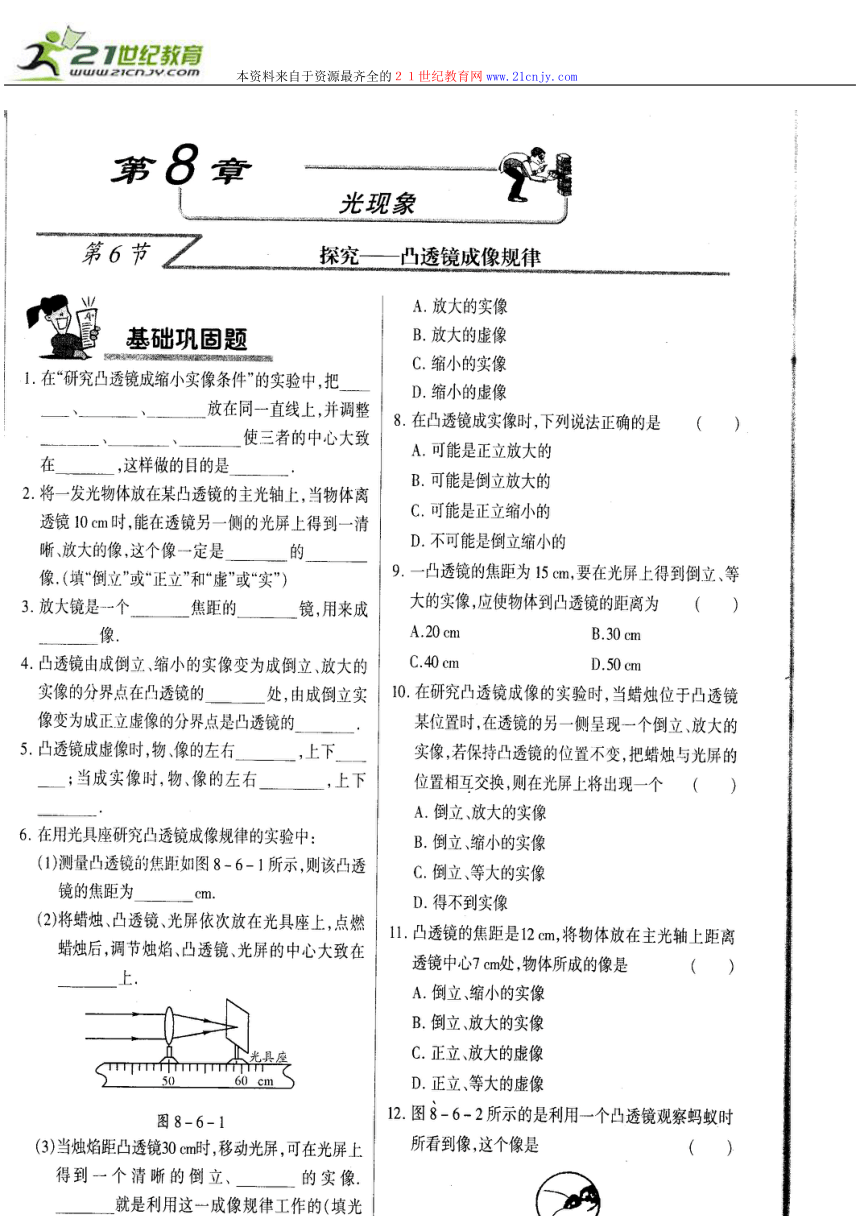 21世纪教育
www.21cnjy.com
本资料来自于资源最齐全的２１世纪教育网www.21cnjy.com
第8章
光现象
第6节
探究——凸透镜成像规律
基础巩固题
1. 在“研究凸透镜成缩小实像条件”的实验中,把____
____、________、________放在同一直线上,并调整
________、________、________使三者的中心大致
在________,这样做的目的是________.
2. 将一发光物体放在某凸透镜的主光轴上,当物体离
透镜10 cm时,能在透镜另一侧的光屏上得到一清
晰、放大的像,这个像一定是________的________
像.(填“倒立”或“正立”和“虚”或“实”)
3. 放大镜是一个________焦距的________镜,用来成
________像.
4. 凸透镜由成倒立、缩小的实像变为成倒立、放大的
实像的分界点在凸透镜的________处,由成倒立实
像变为成正立虚像的分界点是凸透镜的________.
5. 凸透镜成虚像时,物、像的左右________,上下____
____;当成实像时,物、像的左右________,上下
________.
6. 在用光具座研究凸透镜成像规律的实验中:
(1)测量凸透镜的焦距如图8-6-1所示,则该凸透
镜的焦距为________cm.
(2)将蜡烛、凸透镜、光屏依次放在光具座上,点燃
蜡烛后,调节烛焰、凸透镜、光屏的中心大致在
________上.
光具座
50 60 cm
图8-6-1
(3)当烛焰距凸透镜30 cm时,移动光屏,可在光屏上
得到一个清晰的倒立、________的实像.
________就是利用这一成像规律工作的(填光
A. 放大的实像
B. 放大的虚像
C. 缩小的实像
D. 缩小的虚像
8. 在凸透镜成实像时,下列说法正确的是 ( )
A. 可能是正立放大的
B. 可能是倒立放大的
C. 可能是正立缩小的
D. 不可能是倒立缩小的
9. 一凸透镜的焦距为15 cm,要在光屏上得到倒立、等
大的实像,应使物体到凸透镜的距离为 ( )
A.20 cm B.30 cm
C.40 cm D.50 cm
10. 在研究凸透镜成像的实验时,当蜡烛位于凸透镜
某位置时,在透镜的另一侧呈现一个倒立、放大的
实像,若保持凸透镜的位置不变,把蜡烛与光屏的
位置相互交换,则在光屏上将出现一个 ( )
A. 倒立、放大的实像
B. 倒立、缩小的实像
C. 倒立、等大的实像
D. 得不到实像
11. 凸透镜的焦距是12 cm,将物体放在主光轴上距离
透镜中心7 cm处,物体所成的像是 ( )
A. 倒立、缩小的实像
B. 倒立、放大的实像
C. 正立、放大的虚像
D. 正立、等大的虚像
12. 图8-6-2所示的是利用一个凸透镜观察蚂蚁时
所看到像,这个像是 ( )